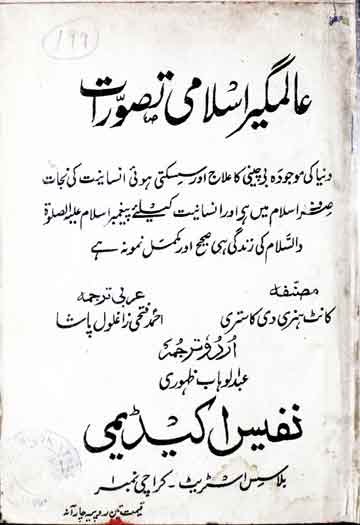 ۱۹۹
عالمگیر اسلامی تصورات
دنیا کی موجودہ بے چینی کا علاج اور سسکتی ہوئی انسانیت کی نجات
صرف اسلام میں ہے اور انسانیت کیلئے پیغمبر اسلام علیہ الصلوٰۃ
والسلام کی زندگی ہی صحیح اور مکمل نمونہ ہے
مصنفہ
کانٹ ہنری دی کاستری
عربی ترجمہ
احمد فتحی زاغلول پاشا
اردو ترجمہ
عبدالوہاب ظہوری
نفیس اکیڈیمی
بلاسس اسٹریٹ - کراچی نمبر ۱
قیمت تین روپیہ چار آنہ